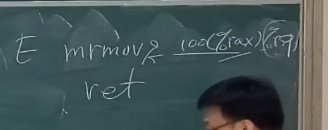 E mrmovq 100(%rax)(%rsp)
ret